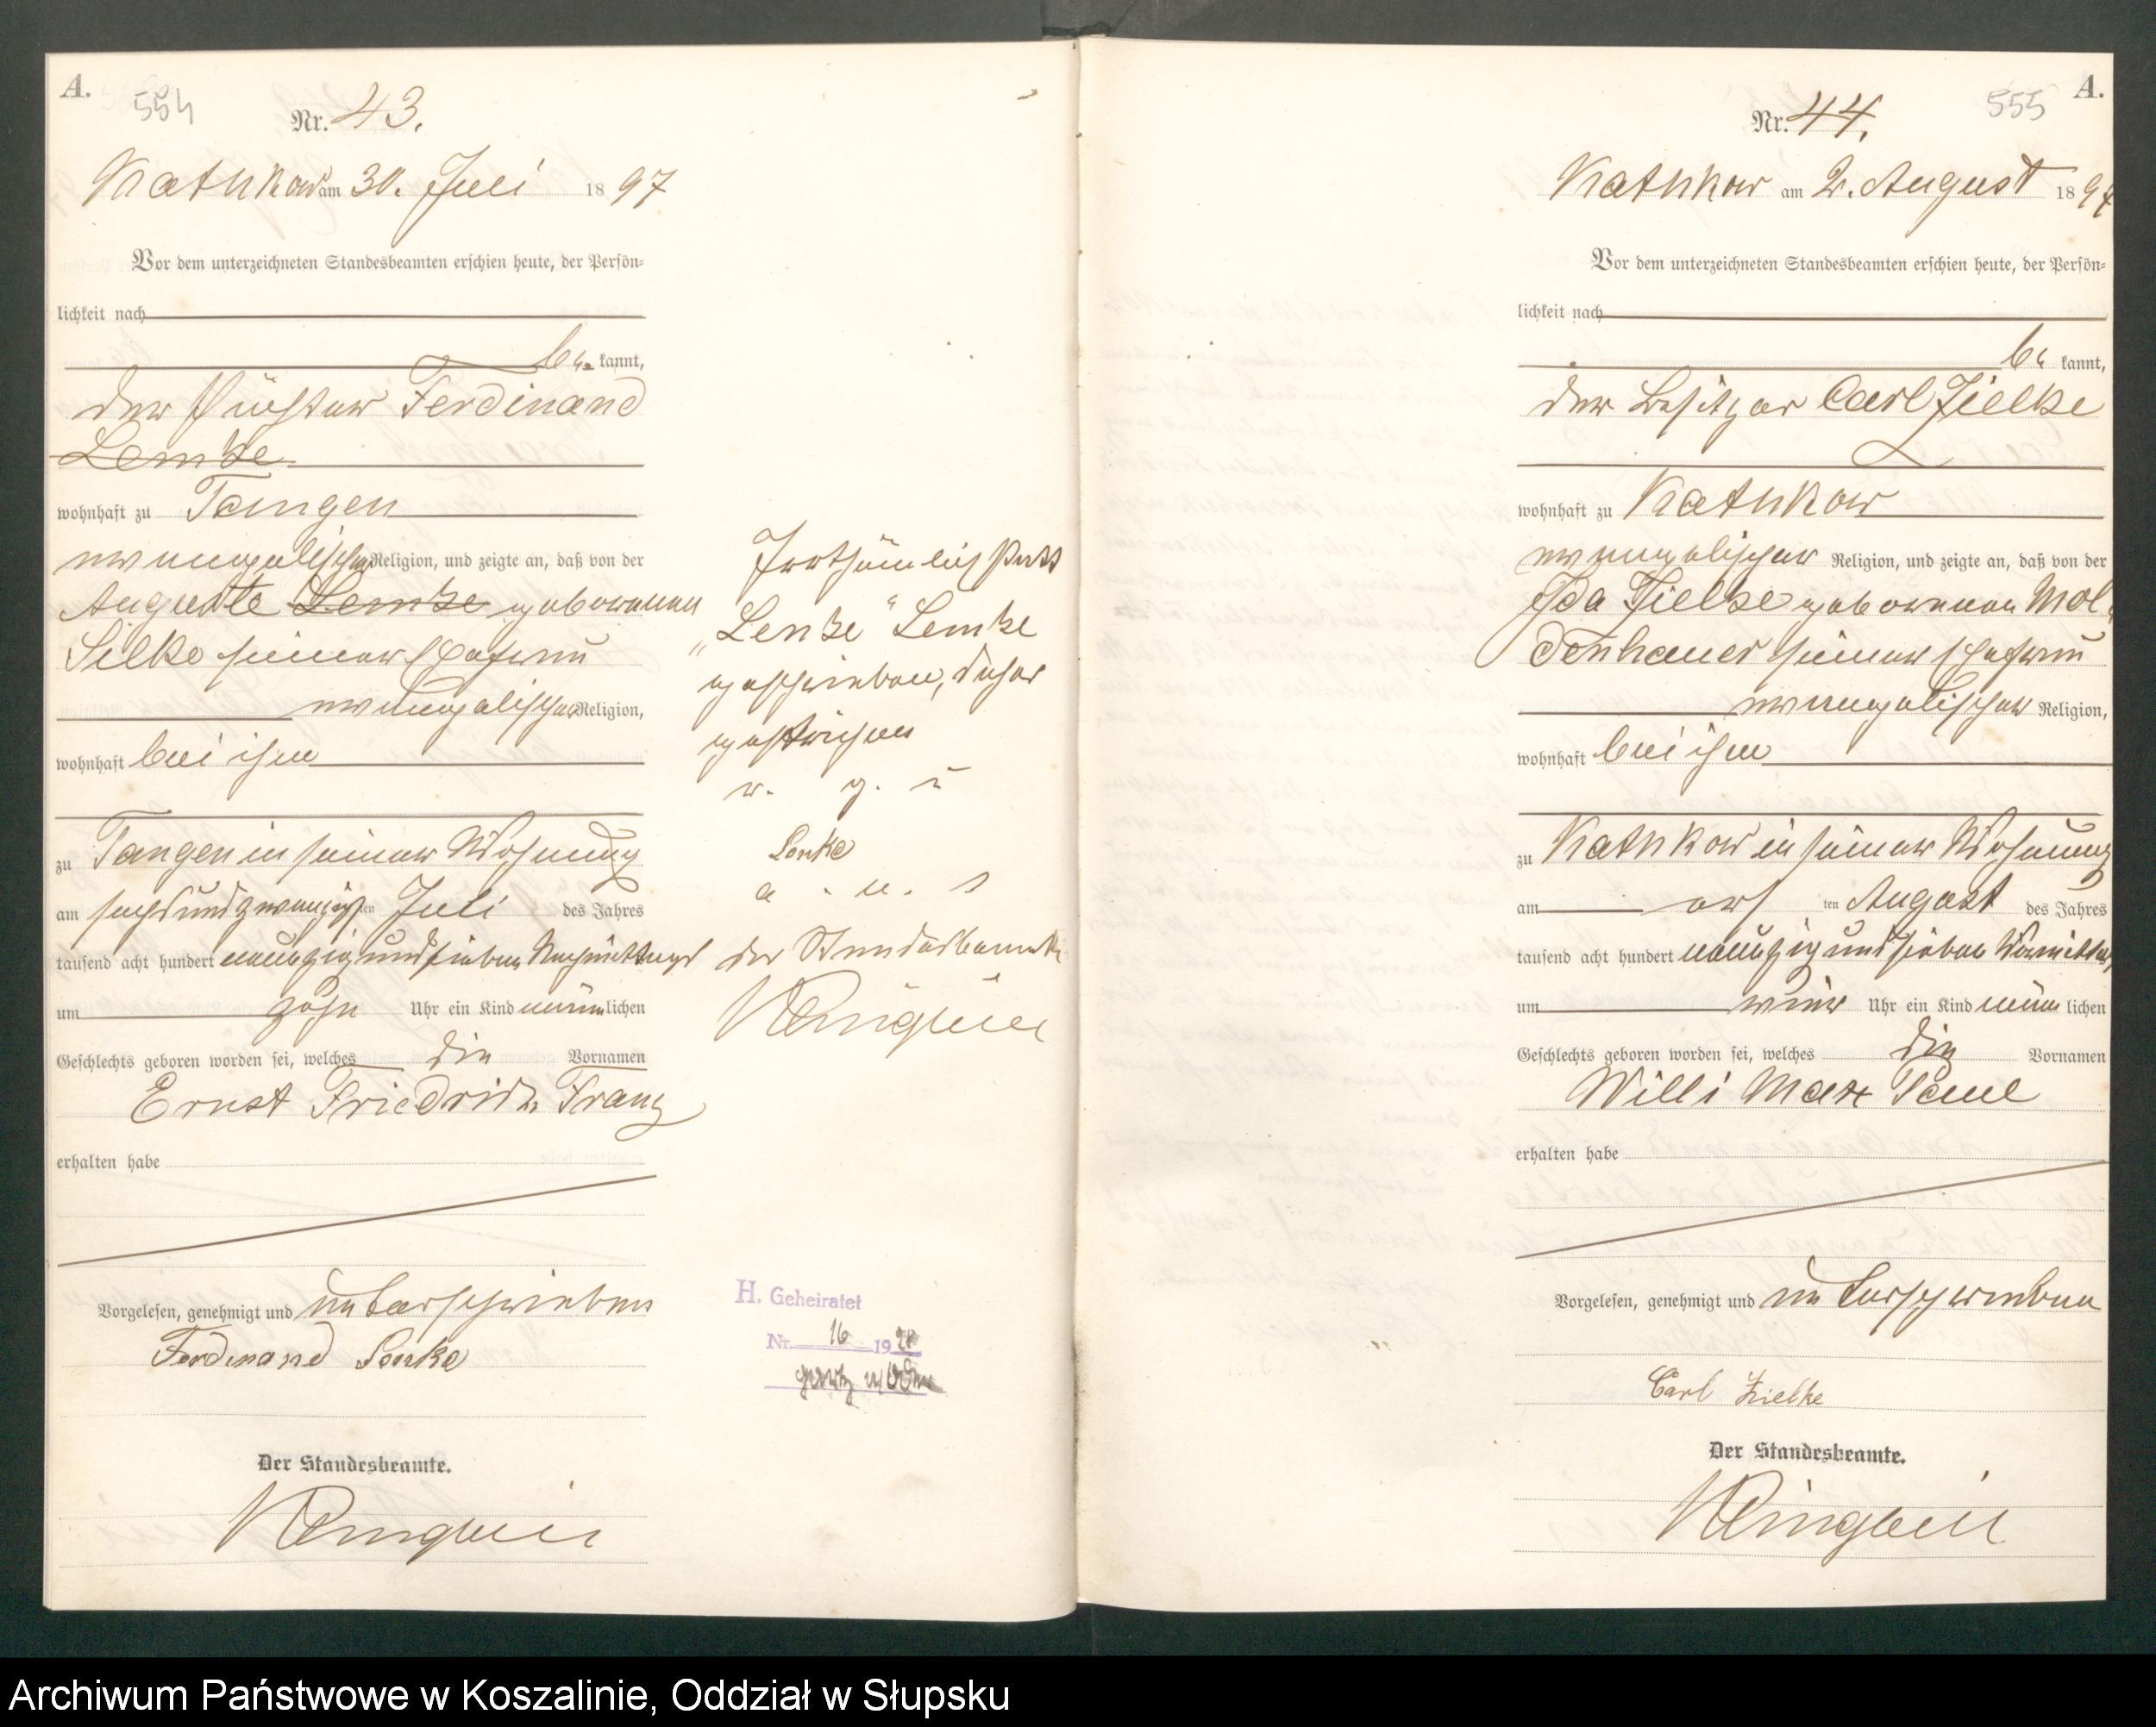 A.
554
Nr. 43.
Kathkow am 30. Juli 1897
Vor dem unterzeichneten Standesbeamten erschien heute, der Persön-
lichkeit nach
be kannt,
der Ferdinand
Lemke
wohnhaft zu Tangen
evangelischer Religion, und zeigte an, daß von der
Auguste Lemke geborenen
Silke seiner Ehefrau
evangelischer Religion,
wohnhaft bei ihm
zu Tangen in seiner Wohnung
am sechsundzwanzigsten Juli des Jahres
tausend acht hundert neunzig und sieben Nachmittags
um zehn Uhr ein Kind männlichen
Geschlechts geboren worden sei, welches die Vornamen
Ernst Friedrich Franz
erhalten habe
Vorgelesen, genehmigt und unterschrieben
Ferdinand Lenke
Der Standesbeamte.
Irrthümlich statt
„Lenke“ Lemke
geschrieben, daher
gestrichen
v. g. u
Lenke
a. u. s
der Standesbeamte
H. Geheiratet
Nr. 16 1920
A.
555
Nr. 44.
Kathkow am 2. August 1897
Vor dem unterzeichneten Standesbeamten erschien heute, der Persön-
lichkeit nach
be kannt,
der Besitzer Carl Zielke
wohnhaft zu Kathkow
evangelischer Religion, und zeigte an, daß von der
Ida Zielke geborenen Mol-
denhauer seiner Ehefrau
evangelischer Religion,
wohnhaft bei ihm
zu Kathkow in seiner Wohnung
am ersten August des Jahres
tausend acht hundert neunzig und sieben Vormittags
um vier Uhr ein Kind männlichen
Geschlechts geboren worden sei, welches die Vornamen
Willi Max Paul
erhalten habe
Vorgelesen, genehmigt und unterschrieben
Carl Zielke
Der Standesbeamte.
Archiwum Państwowe w Koszalinie, Oddział w Słupsku